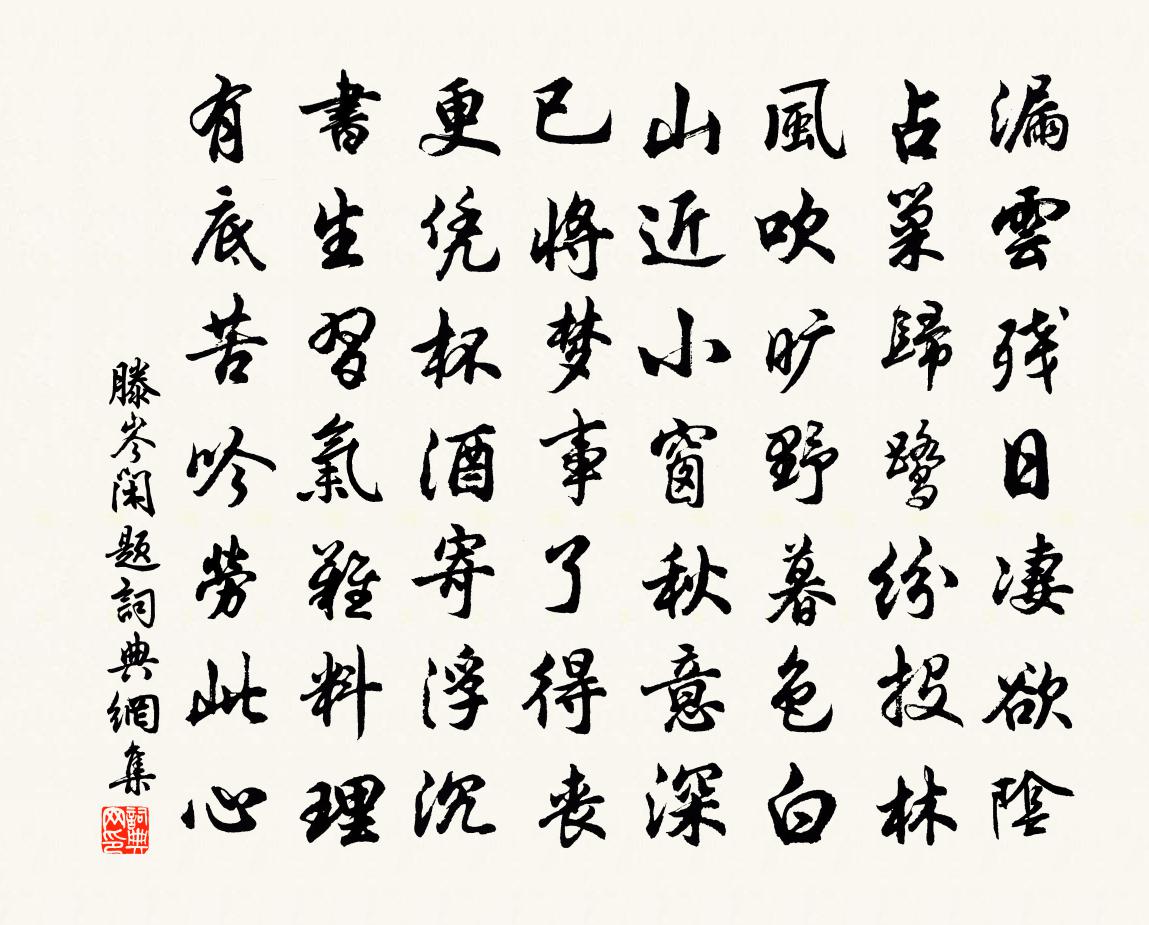 漏雲残日凄欲陰
占巢歸鷺紛投林
風吹旷野暮色白
山近小窗秋意深
已將梦事了得丧
更凭杯酒寄浮沉
書生習氣難料理
有底苦吟勞此心
滕岑闲题詞典網集
詞典网印